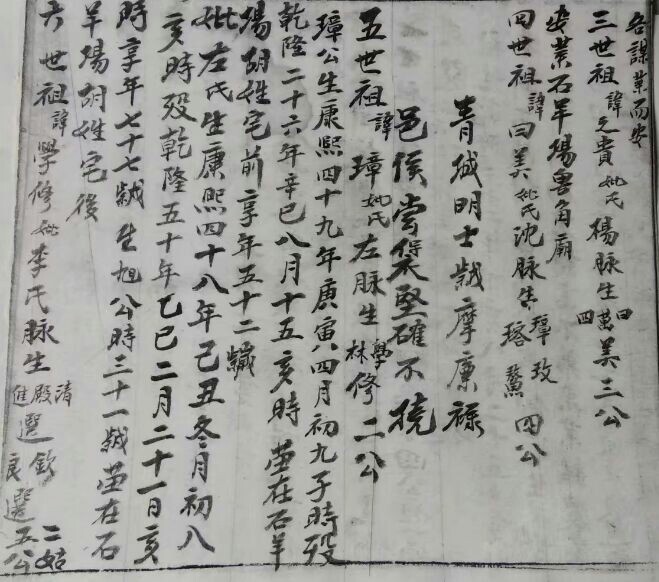 各謀業而安
三世祖諱之貴妣氏楊脉生曰萬四美三公
安業石羊場魯角廟
四世祖諱曰美妣氏沈脉生璋玫瑢鰲四公
青城明士 摩廩祿
邑侯當 堅確不撓
五世祖諱璋妣氏左脉生學林修二公
璋公生康熙四十九年庚寅八四月初九子時殁
乾隆二十六年辛巳八月十五亥時塟在石羊
場胡姓宅前享年五十二歲
妣左氏生康熙四十八年己丑冬月初八
亥時殁乾隆五十年乙巳二月二十一日亥
時享年七十七歲生旭公時三十一歲塟在石
羊場胡姓宅後
六世祖諱學修妣李氏脉生清殿進選欽良選五公二姑